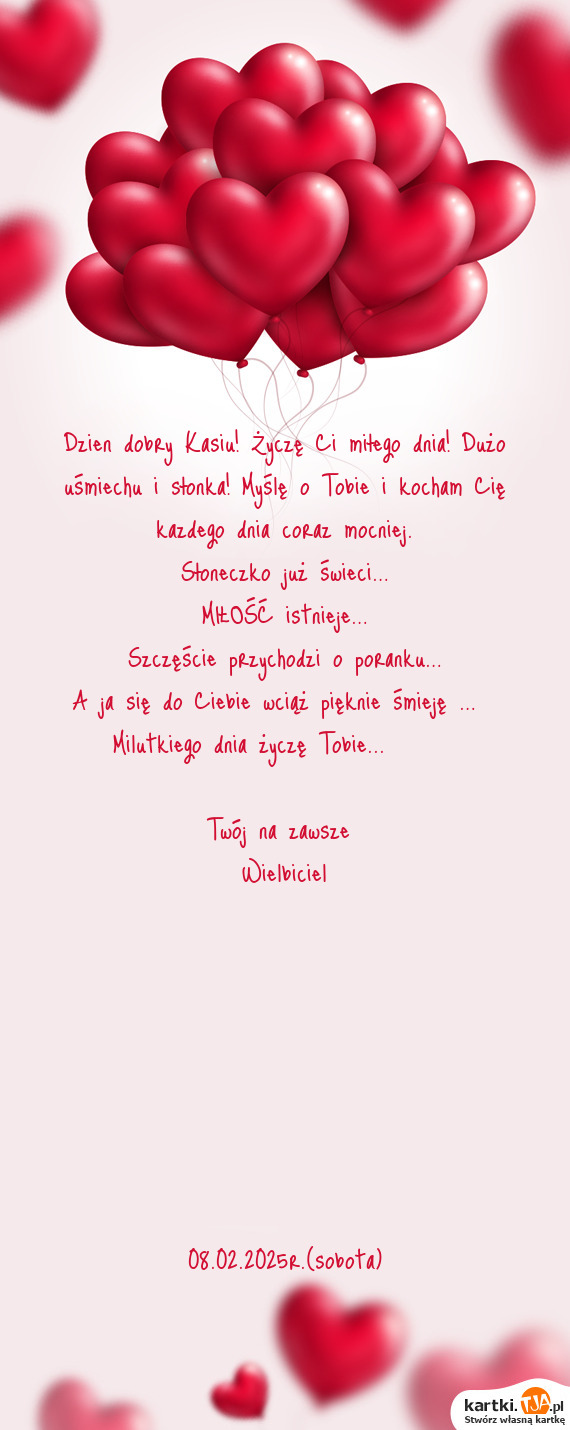 Dzien dobry Kasiu! Życzę Ci miłego dnia! Dużo
uśmiechu i słonka! Myślę o Tobie i kocham Cię
kazdego dnia coraz mocniej.
Słoneczko już świeci...
MIŁOŚĆ istnieje...
Szczęście przychodzi o poranku...
A ja się do Ciebie wciąż pięknie śmieję ...
Milutkiego dnia życzę Tobie...
Twój na zawsze
Wielbiciel
08.02.2025r.(sobota)
kartki.TJA.pl
Stwórz własną kartkę